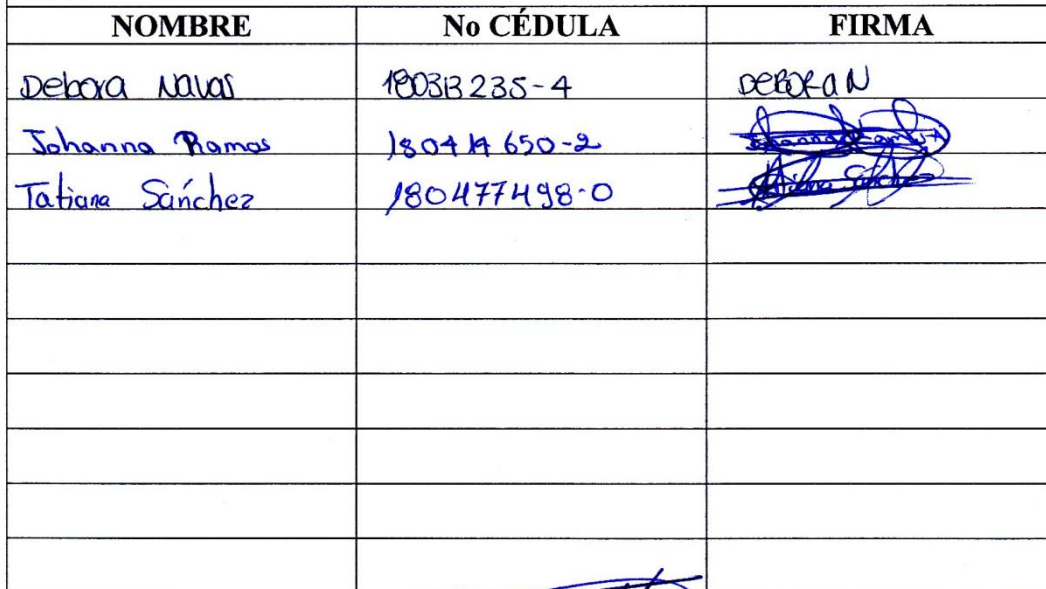 NOMBRE No CÉDULA FIRMA
Debora Navas 180313235-4 DEBORAN
Johanna Ramos 180414650-2
Tatiana Sánchez 180477498-0 Tatiana Sánchez